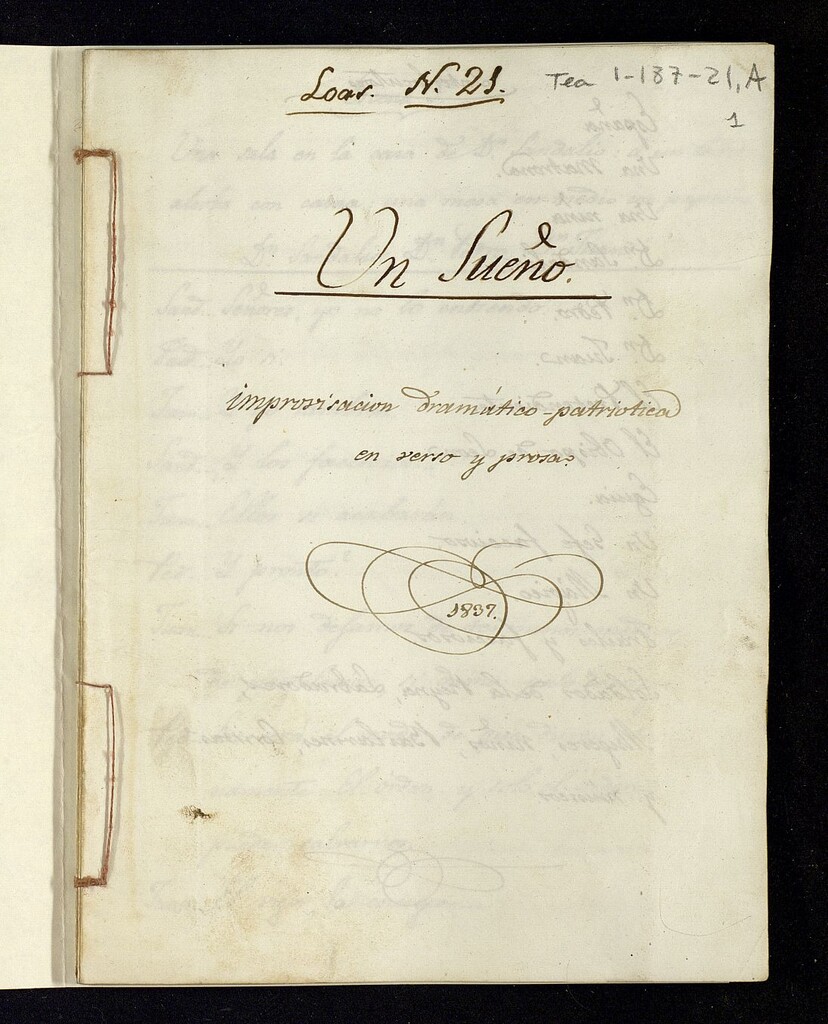 Loas. N. 21.
Tea 1-187-21, A
1
Un Sueño.
improvisacion dramático-patriotica
en verso y prosa.
1837.